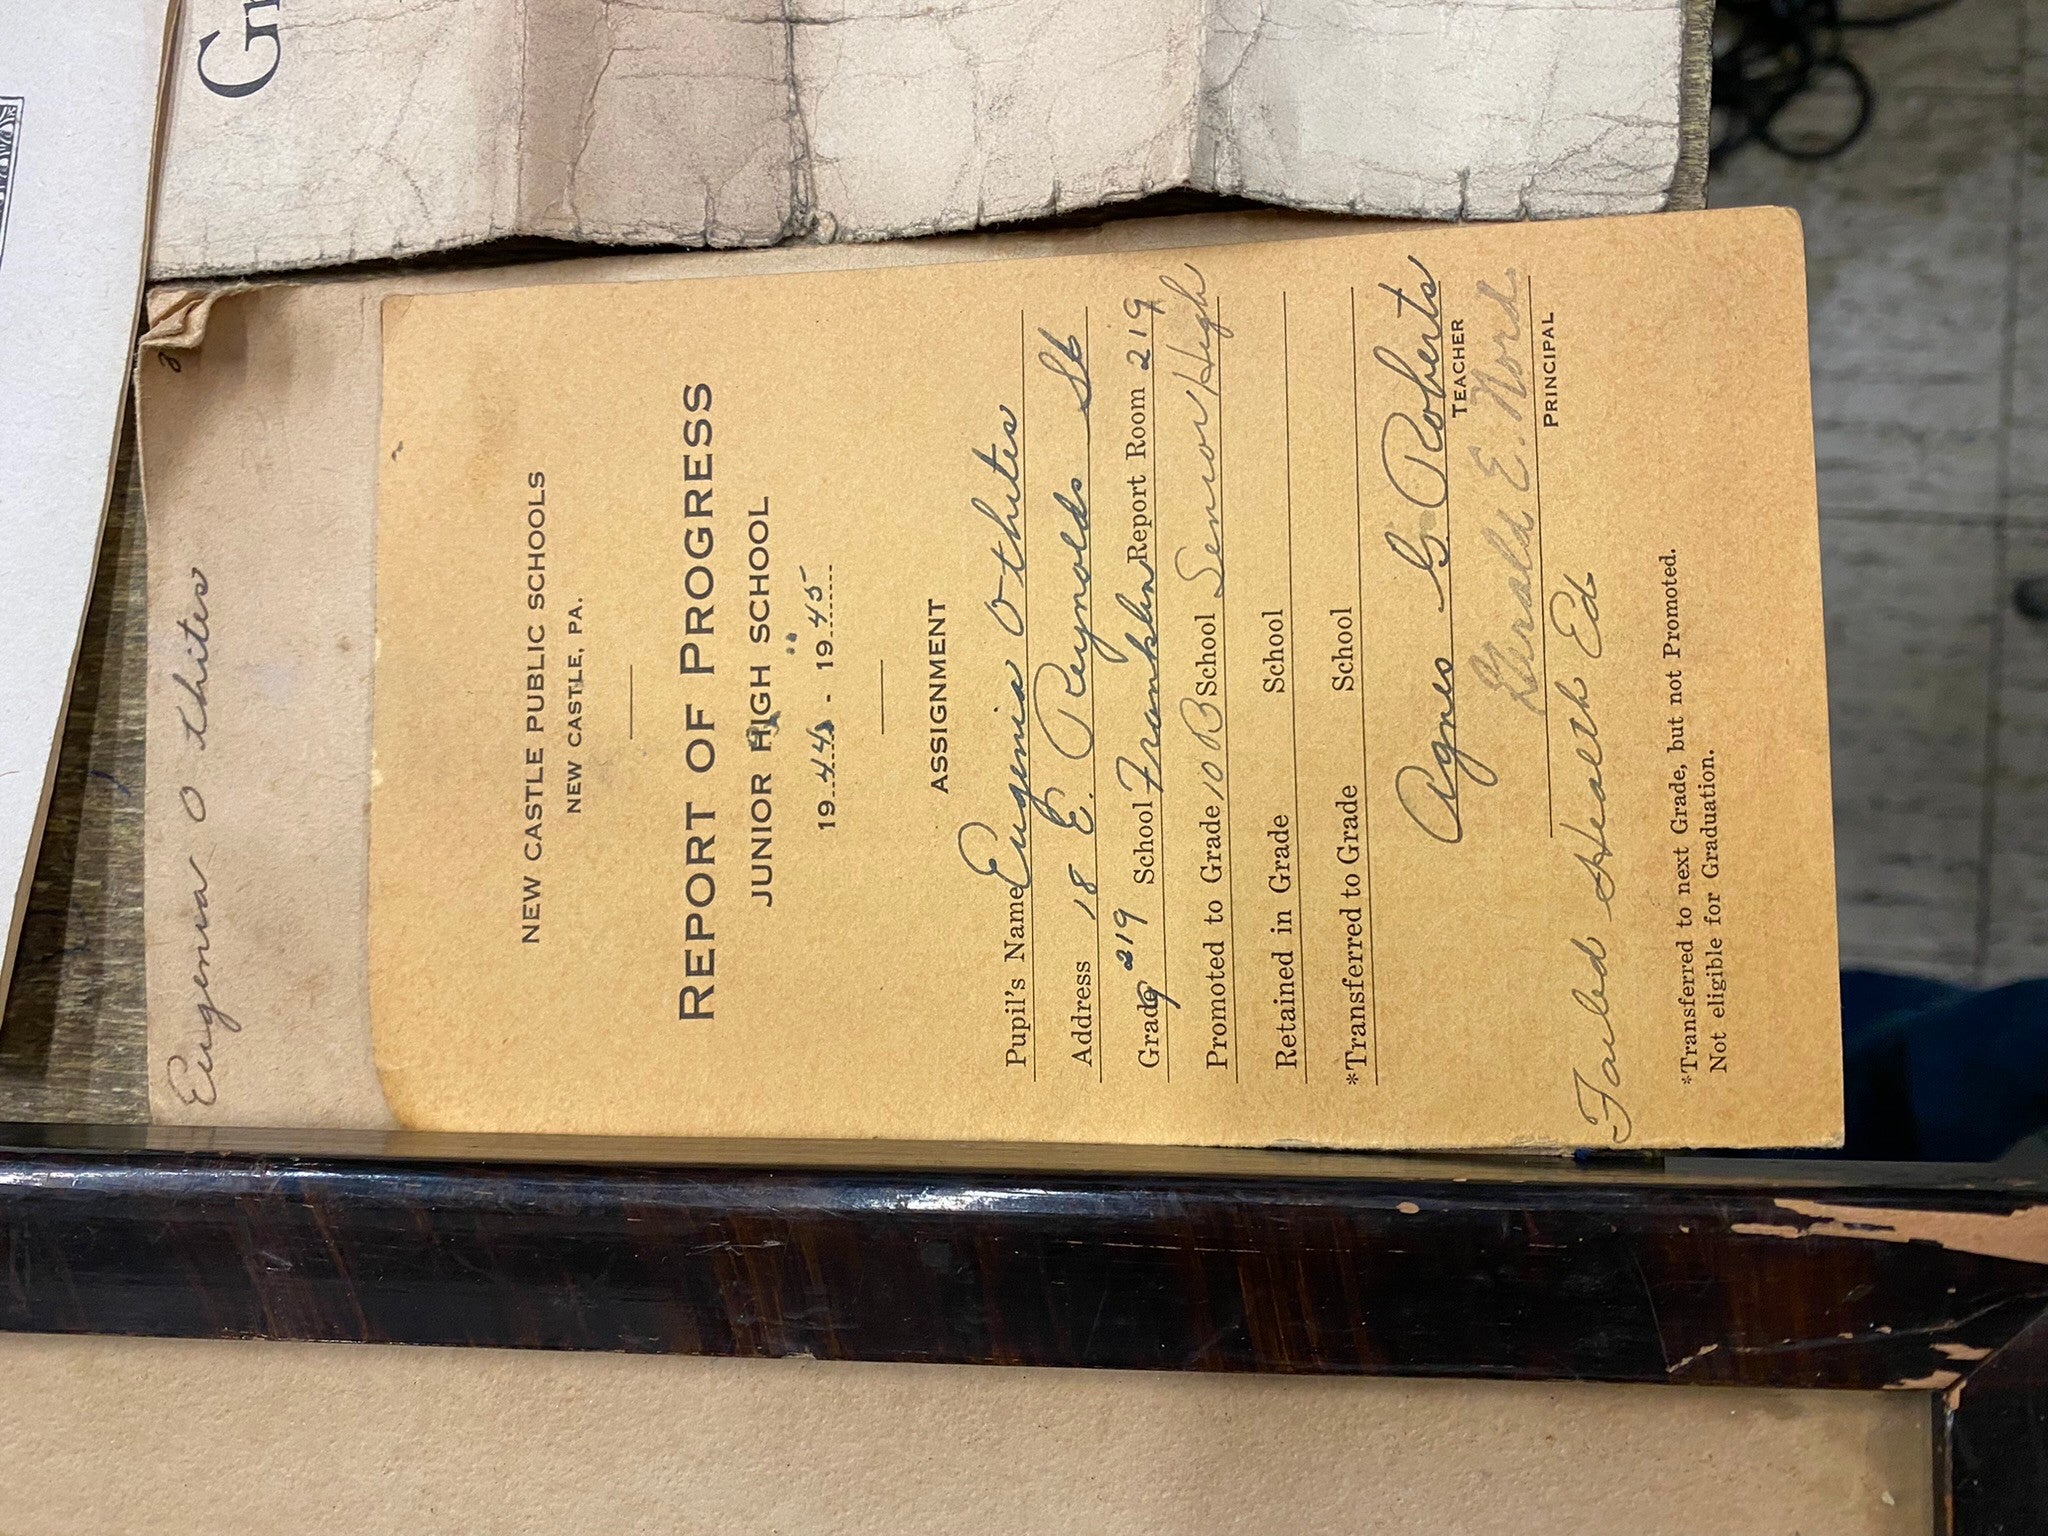 Gr
Eugenia Othites
NEW CASTLE PUBLIC SCHOOLS
NEW CASTLE, PA.
REPORT OF PROGRESS
JUNIOR HIGH SCHOOL
1944 - 1945
ASSIGNMENT
Pupil's Name Eugenia Othites
Address 18 E. Reynolds St
Grade 9 219 School Franklin Report Room 219
Promoted to Grade 10 B School Senior High
Retained in Grade School
*Transferred to Grade School
Agnes G Roberts
TEACHER
Gerald E. Nord
PRINCIPAL
Failed Health Ed
*Transferred to next Grade, but not Promoted.
Not eligible for Graduation.